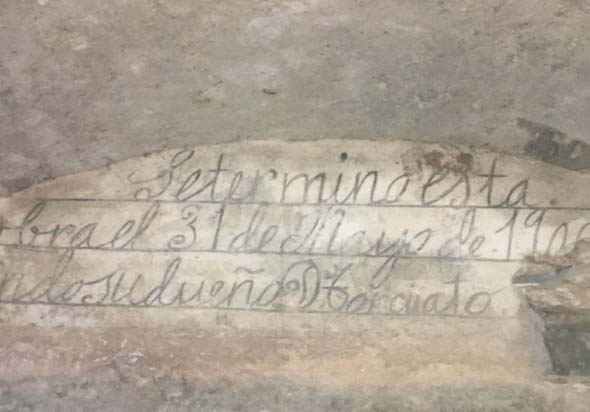 Setermino esta.
obra el 31 de Mayo de 190
ndo su dueño Dn Torcuato.